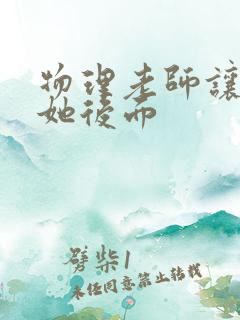 物理老師讓
她後而
劈柴1
未经同意禁止转载